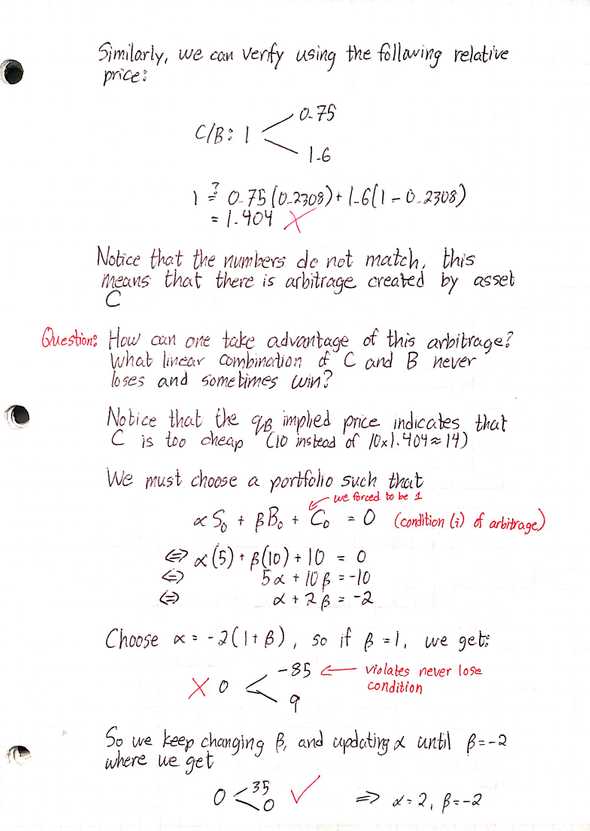 Similarly, we can verify using the following relative
price:
C/B: 1 < 0.75
1.6
1 ≟ 0.75(0.2308) + 1.6(1 - 0.2308)
= 1.404 ✗
Notice that the numbers do not match, this
means that there is arbitrage created by asset
C
Question: How can one take advantage of this arbitrage?
What linear combination of C and B never
loses and sometimes win?
Notice that the q_B implied price indicates that
C is too cheap (10 instead of 10×1.404 ≈ 14)
We must choose a portfolio such that
we forced to be 1
αS₀ + βB₀ + C₀ = 0 (condition (i) of arbitrage)
⇔ α(5) + β(10) + 10 = 0
⇔ 5α + 10β = -10
⇔ α + 2β = -2
Choose α = -2(1+β), so if β = 1, we get:
✗ 0 < -85 ← violates never lose
9 condition
So we keep changing β, and updating α until β = -2
where we get
0 < 35 ✓
0 ⇒ α = 2, β = -2